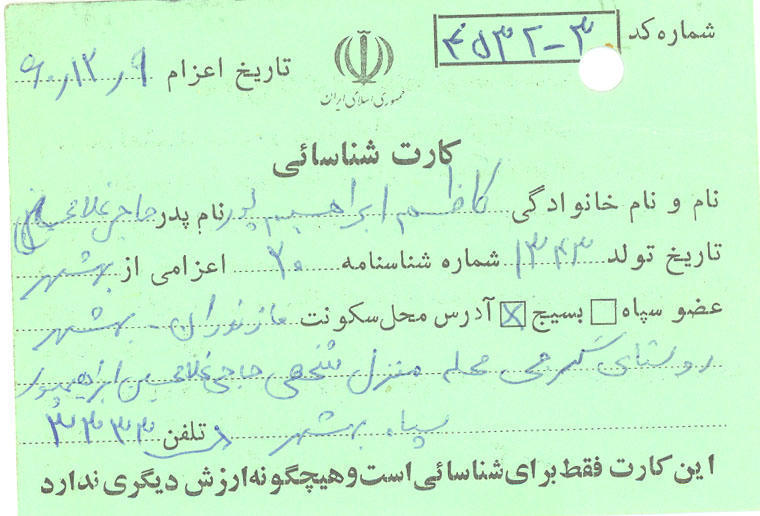 شماره کد ۳-۴۵۳۲
جمهوری اسلامی ایران
تاریخ اعزام ۶۰/۱۲/۹
کارت شناسائی
نام و نام خانوادگی کاظم ابراهیم پور نام پدر حاجی غلامحسین
تاریخ تولد ۱۳۴۳ شماره شناسنامه ۲۰ اعزامی از بهشهر
عضو سپاه بسیج آدرس محل سکونت مازندران - بهشهر
روستای محله منزل شخصی حاجی غلامحسین ابراهیم پور
سپاه بهشهر تلفن ۳۳۴۳
این کارت فقط برای شناسائی است و هیچگونه ارزش دیگری ندارد